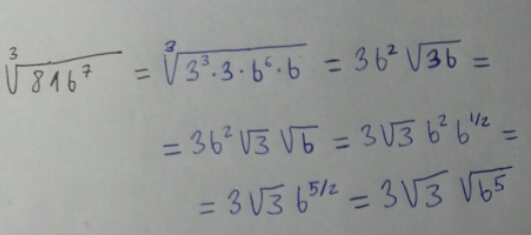 ∛(81b⁷) = ∛(3³·3·b⁶·b) = 3b²√(3b) =
= 3b²√3 √b = 3√3 b² b^(1/2) =
= 3√3 b^(5/2) = 3√3 √(b⁵)